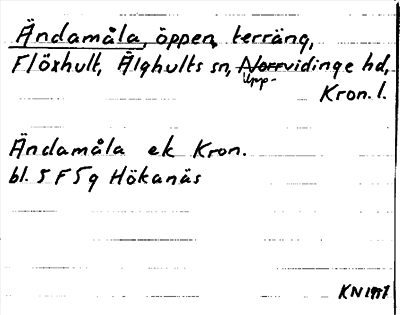 Ändamåla, öppen terräng,
Flöxhult, Älghults sn, Norrvidinge hd,
Upp-
Kron. l.
Ändamåla ek Kron.
bl. 5 F 5 g Hökanäs
KN 1957